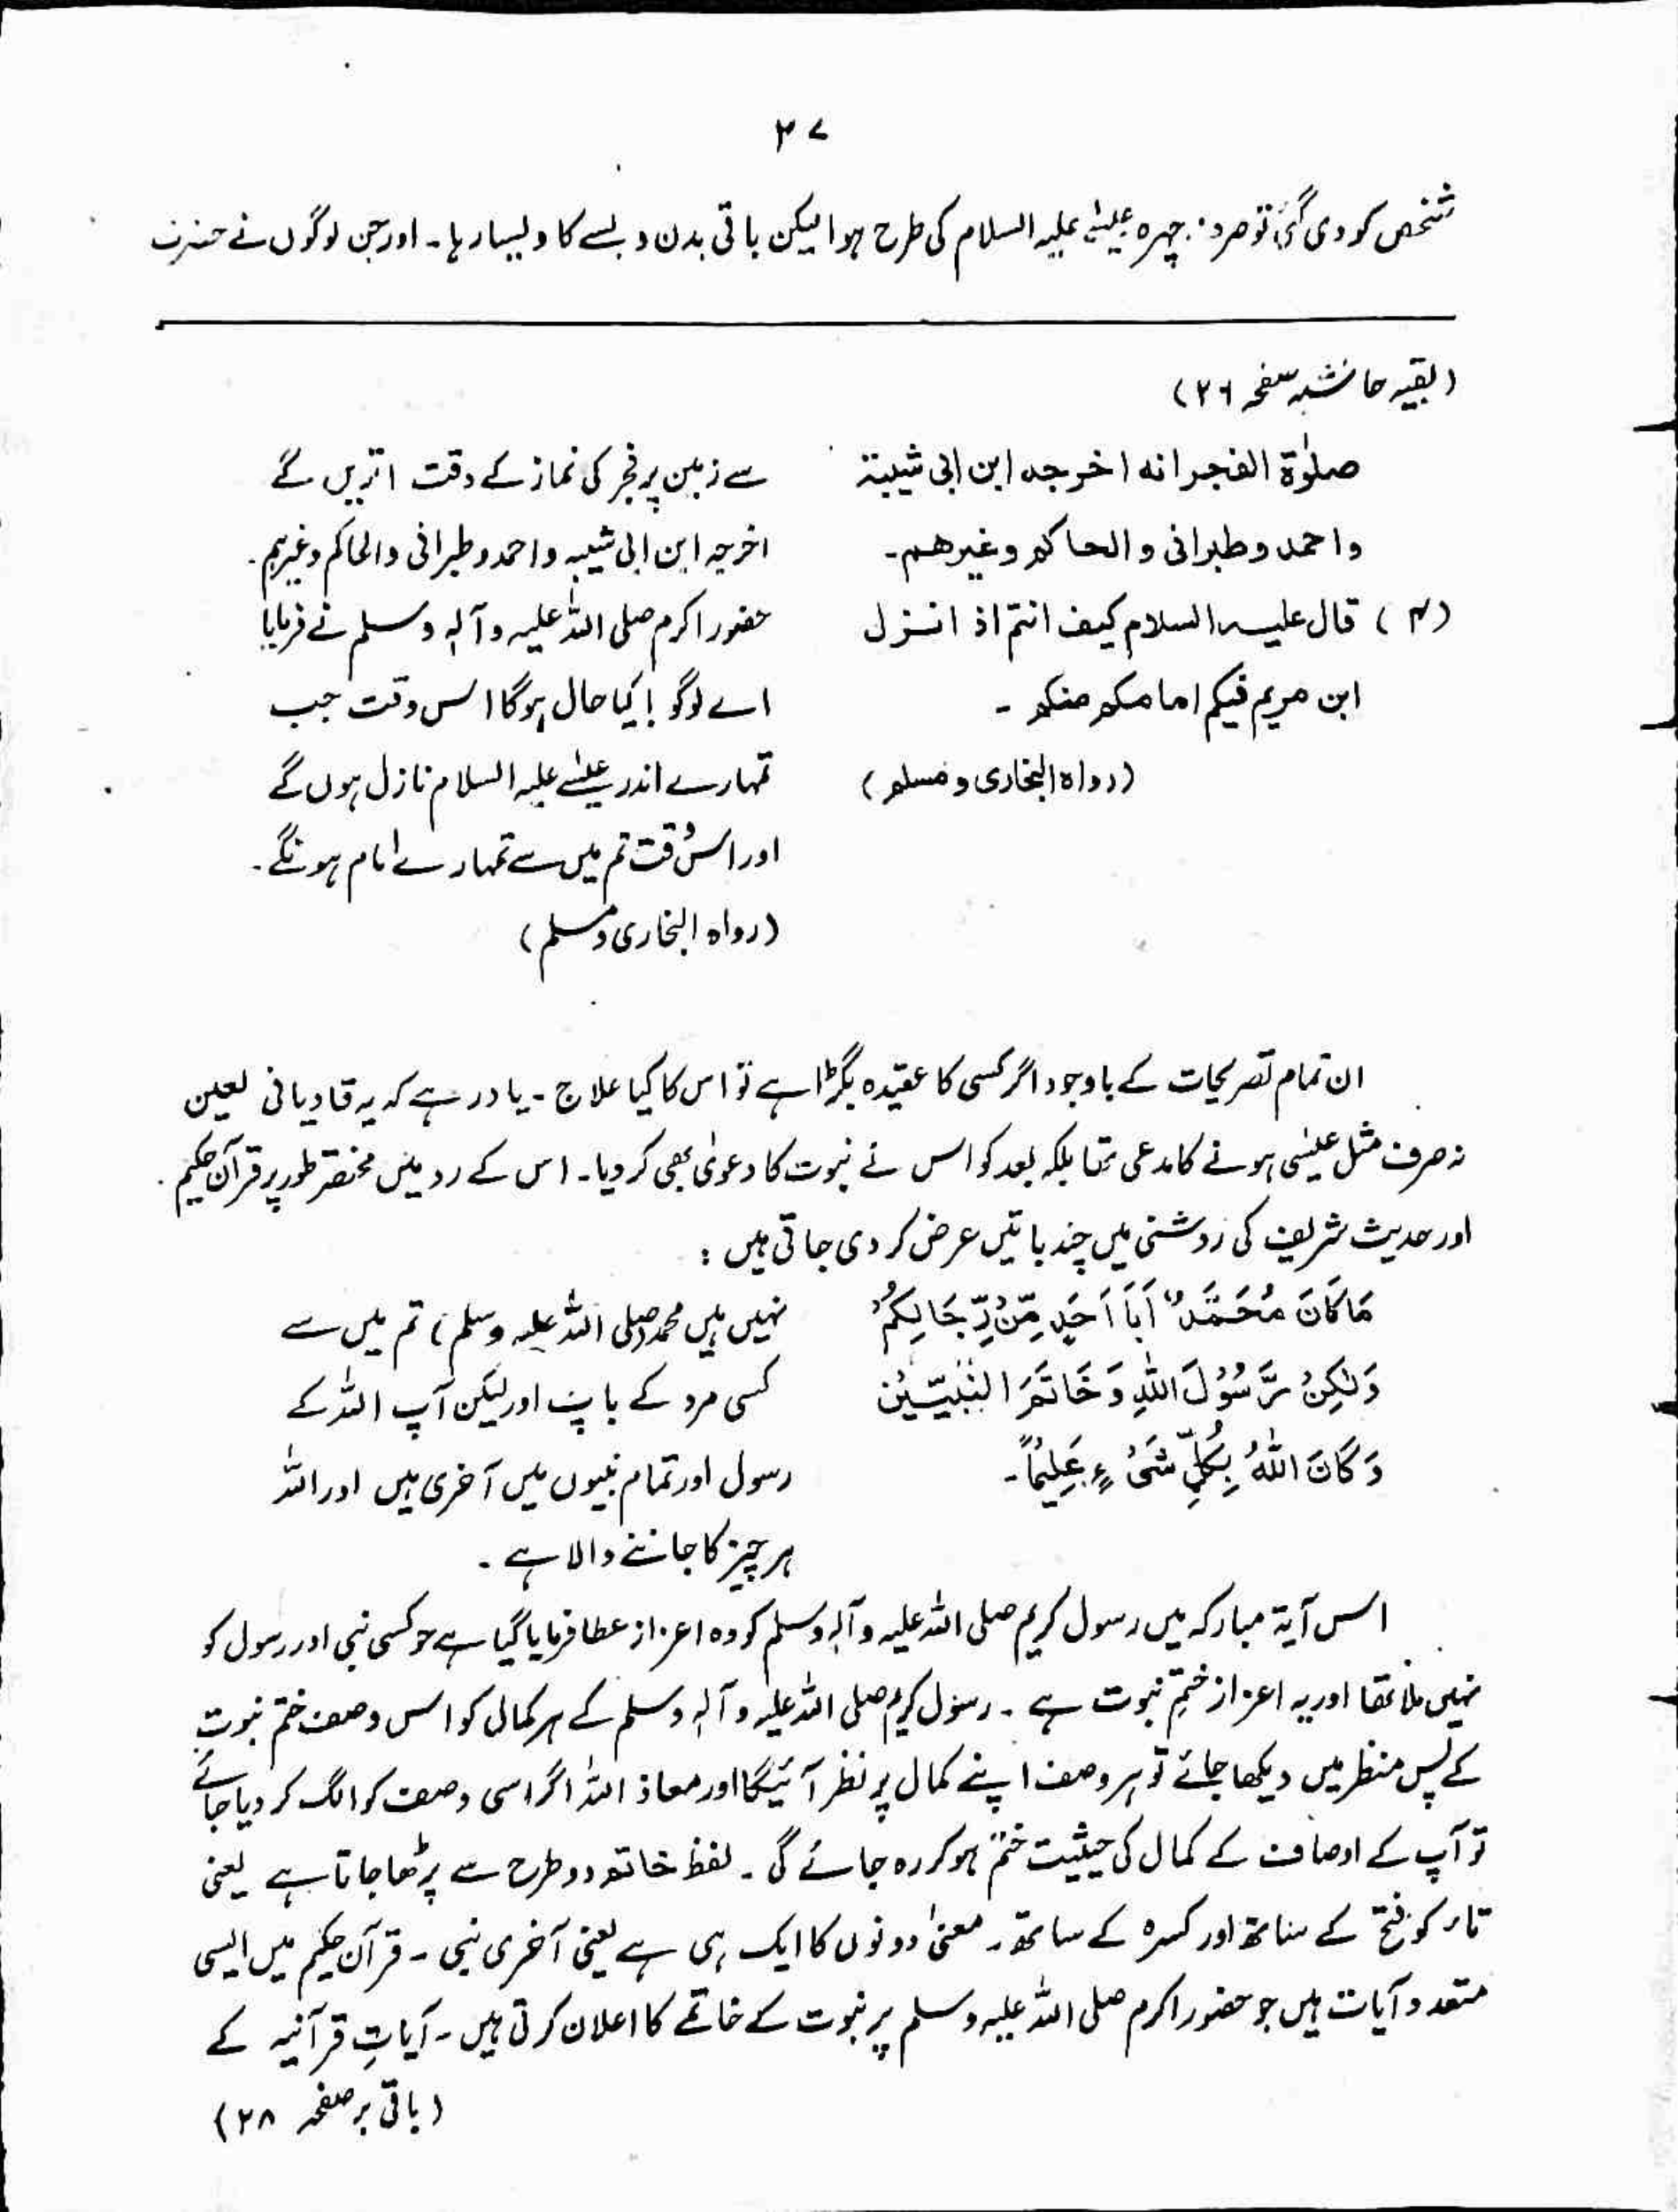 ۲۷
شخص کو دی گئی تو صرف چہرہ عیسٰے علیہ السلام کی طرح ہوا لیکن باقی بدن ویسے کا ویسا رہا۔ اور جن لوگوں نے حضرت
(بقیہ حاشیہ صفحہ ۲۶)
صلوٰۃ الفجر انہ اخرجہ ابن ابی شیبۃ
واحمد وطبرانی والحاکم وغیرھم۔
(۴) قال علیہ السلام کیف انتم اذ انزل
ابن مریم فیکم امامکم منکم ۔
(رواہ البخاری ومسلم)
سے زمین پر فجر کی نماز کے وقت اتریں گے
اخرجہ ابن ابی شیبہ واحمد وطبرانی والحاکم وغیرہم۔
حضور اکرم صلی اللہ علیہ وآلہ وسلم نے فرمایا
اے لوگو! کیا حال ہوگا اس وقت جب
تمہارے اندر عیسٰے علیہ السلام نازل ہوں گے
اور اس وقت تم میں سے تمہارے امام ہونگے۔
(رواہ البخاری ومسلم)
ان تمام تصریحات کے باوجود اگر کسی کا عقیدہ بگڑا ہے تو اس کا کیا علاج ۔ یاد رہے کہ یہ قادیانی لعین
نہ صرف مثل عیسٰی ہونے کا مدعی تھا بلکہ بعد کو اس نے نبوت کا دعویٰ بھی کر دیا۔ اس کے رد میں مختصر طور پر قرآن حکیم
اور حدیث شریف کی روشنی میں چند باتیں عرض کر دی جاتی ہیں :
مَا کَانَ مُحَمَّدٌ اَبَا اَحَدٍ مِّنْ رِّجَالِکُمْ
وَلٰکِنْ رَّسُوْلَ اللّٰہِ وَخَاتَمَ النَّبِیّٖنَ
وَکَانَ اللّٰہُ بِکُلِّ شَیْءٍ عَلِیْمًا۔
نہیں ہیں محمد (صلی اللہ علیہ وسلم) تم میں سے
کسی مرد کے باپ اور لیکن آپ اللہ کے
رسول اور تمام نبیوں میں آخری ہیں اور اللہ
ہر چیز کا جاننے والا ہے ۔
اس آیۃ مبارکہ میں رسول کریم صلی اللہ علیہ وآلہ وسلم کو وہ اعزاز عطا فرمایا گیا ہے جو کسی نبی اور رسول کو
نہیں ملا تھا اور یہ اعزاز ختمِ نبوت ہے ۔ رسول کریم صلی اللہ علیہ وآلہ وسلم کے ہر کمال کو اس وصف ختم نبوت
کے پس منظر میں دیکھا جائے تو ہر وصف اپنے کمال پر نظر آئیگا اور معاذ اللہ اگر اسی وصف کو الگ کر دیا جائے
تو آپ کے اوصاف کے کمال کی حیثیت ختم ہو کر رہ جائے گی ۔ لفظ خاتم دو طرح سے پڑھا جاتا ہے یعنی
تاء کو فتح کے ساتھ اور کسرہ کے ساتھ۔ معنٰی دونوں کا ایک ہی ہے یعنی آخری نبی ۔ قرآن حکیم میں ایسی
متعدد آیات ہیں جو حضور اکرم صلی اللہ علیہ وسلم پر نبوت کے خاتمے کا اعلان کرتی ہیں ۔ آیاتِ قرآنیہ کے
(باقی بر صفحہ ۲۸)